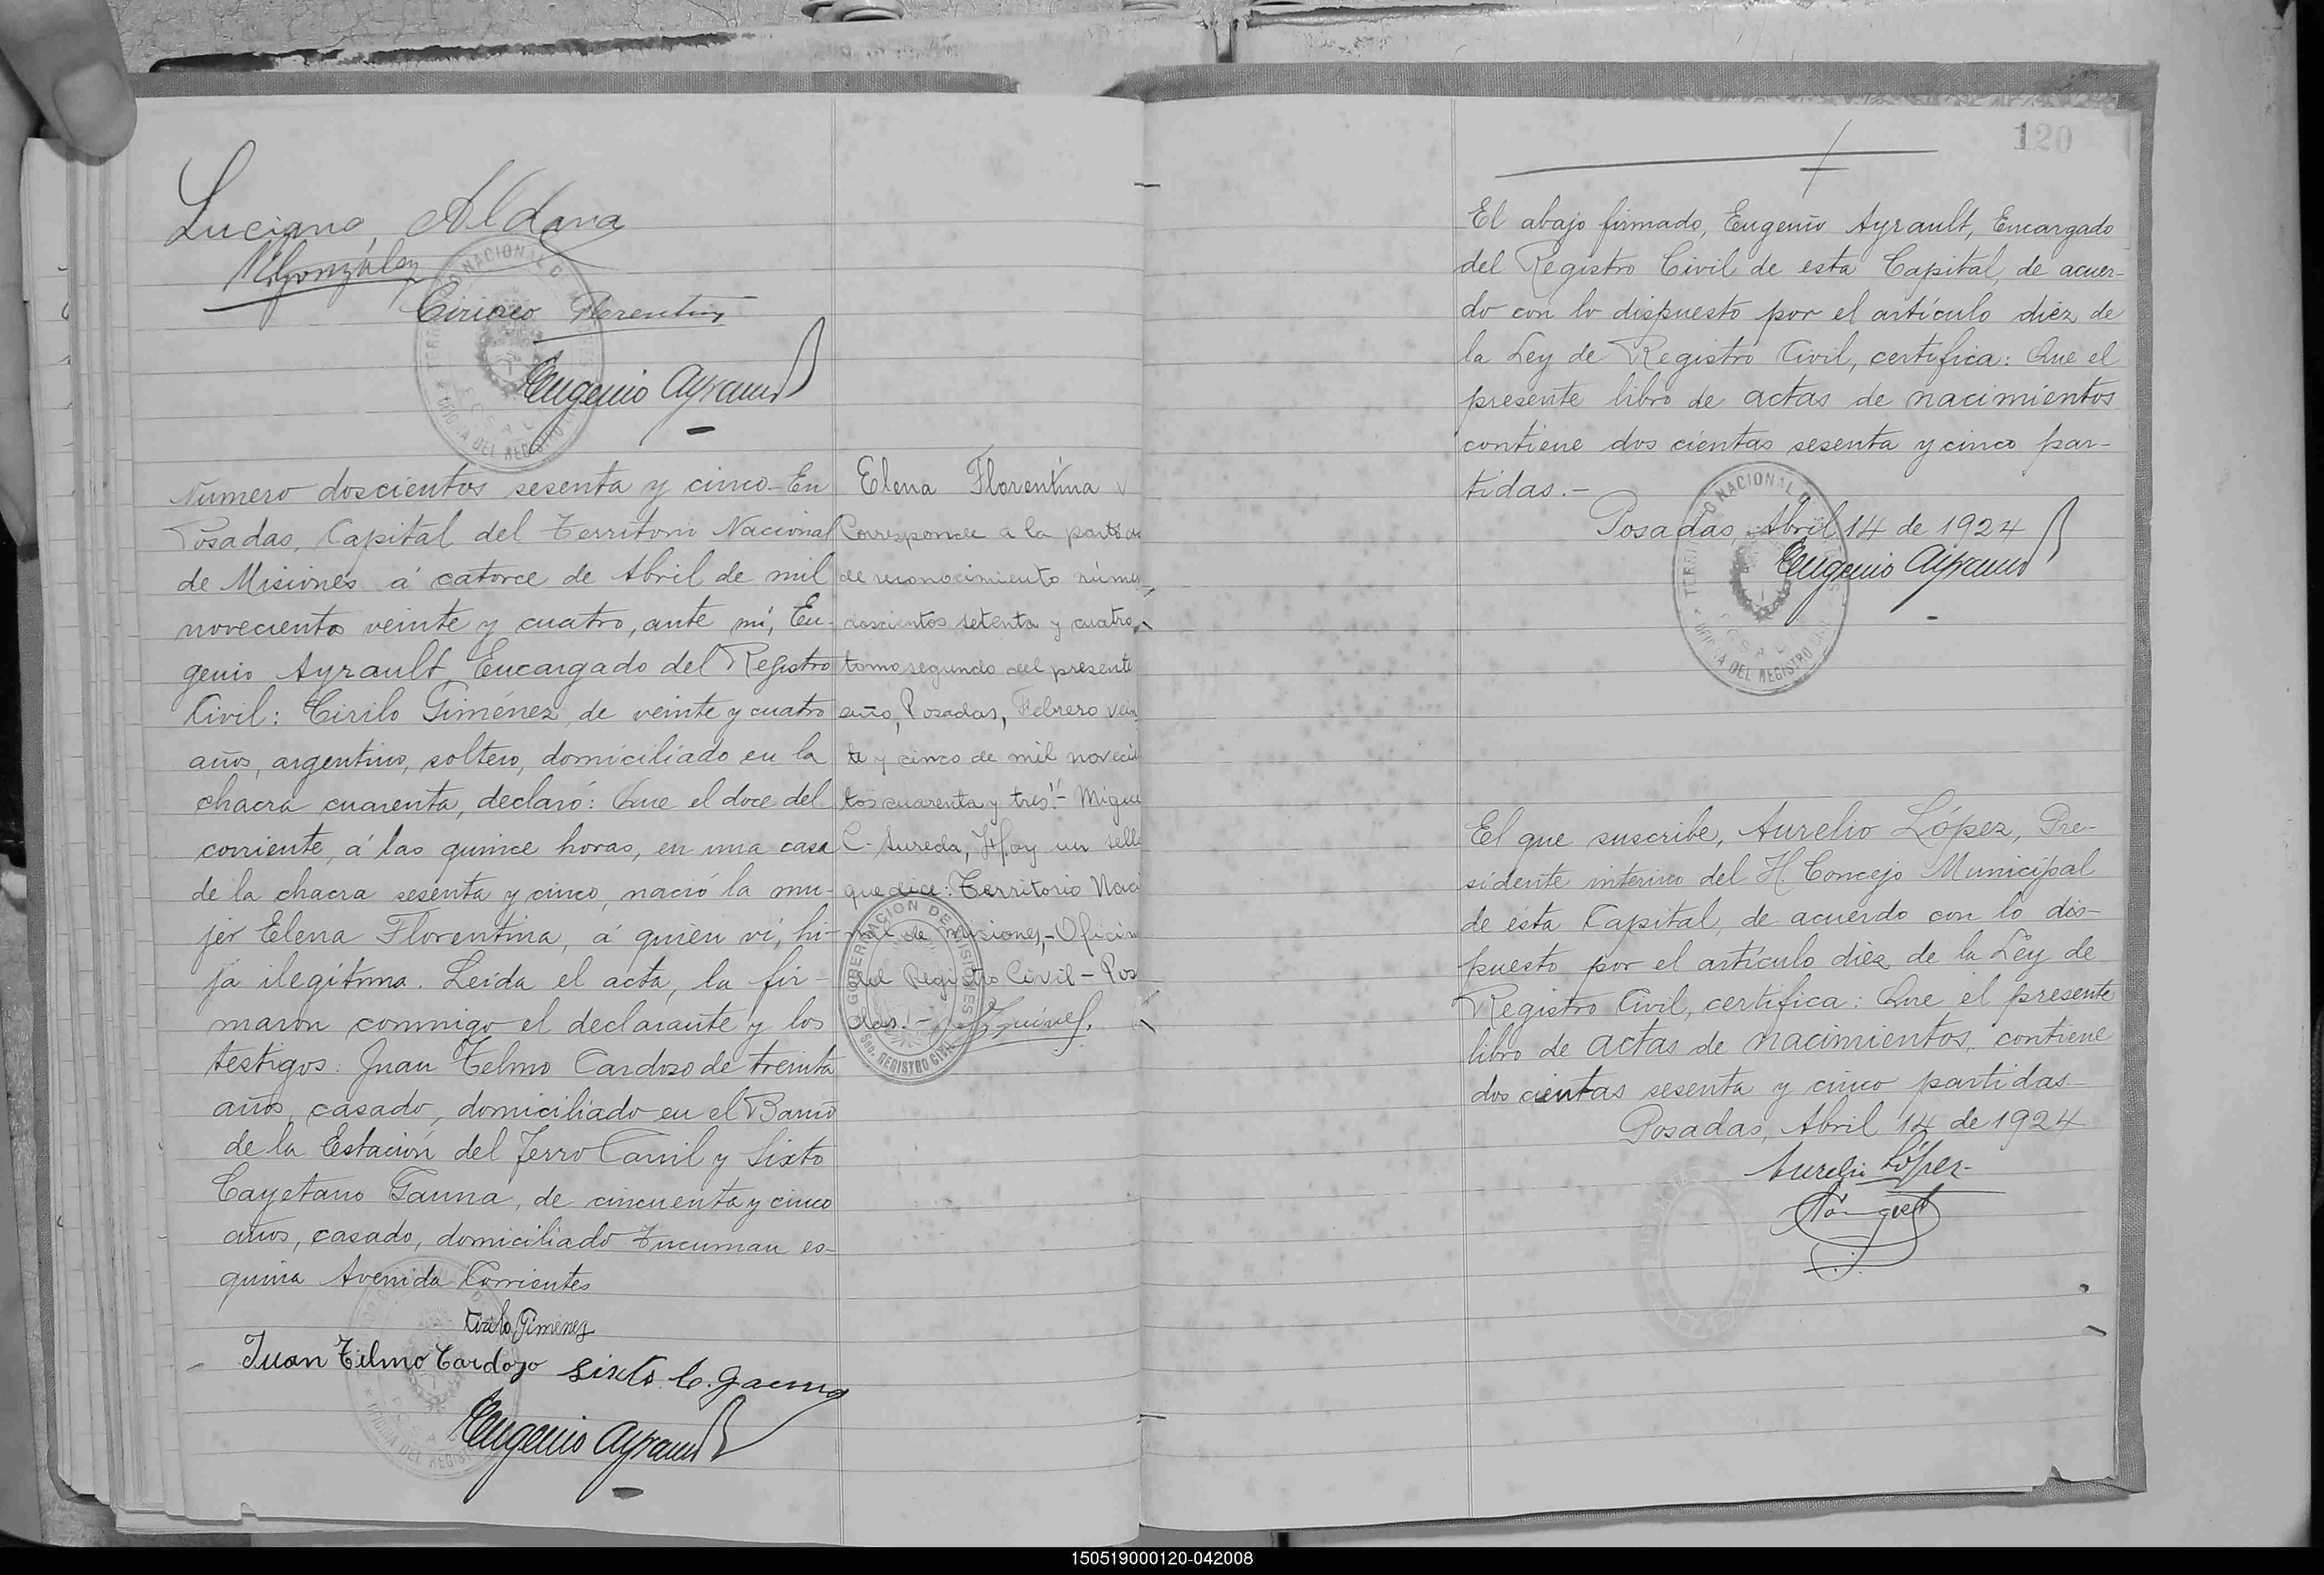 Luciano Aldana
N. González
Ciriaco Florentin
Eugenio Ayrault
Numero doscientos sesenta y cinco - En
Posadas, Capital del Territorio Nacional
de Misiones á catorce de Abril de mil
novecientos veinte y cuatro, ante mí, Eu-
genio Ayrault, Encargado del Registro
Civil: Cirilo Giménez, de veinte y cuatro
años, argentino, soltero, domiciliado en la
chacra cuarenta, declaró: Que el doce del
corriente, á las quince horas, en una casa
de la chacra sesenta y cinco, nació la mu-
jer Elena Florentina, á quien vi, hi-
ja ilegítima. Leida el acta, la fir-
maron conmigo el declarante y los
testigos: Juan Telmo Cardozo de treinta
años, casado, domiciliado en el Barrio
de la Estación del Ferro Carril y Sixto
Cayetano Gauna, de cincuenta y cinco
años, casado, domiciliado Tucuman es-
quina Avenida Corrientes
Cirilo Gimenez
Juan Telmo Cardozo Sixto C. Gauna
Eugenio Ayrault
Elena Florentina
Corresponde a la partida
de reconocimiento núme
doscientos setenta y cuatro,
tomo segundo del presente
año, Posadas, Febrero vein
te y cinco de mil novecie
tos cuarenta y tres!- Miguel
C. Sureda, Hay un sello
que dice: Territorio Naci
nal de Misiones,- Oficin
del Registro Civil - Pos
das.-
GOBERNACION DE MISIONES
Sec. REGISTRO CIVIL
120
El abajo firmado, Eugenio Ayrault, Encargado
del Registro Civil de esta Capital, de acuer-
do con lo dispuesto por el artículo diez de
la Ley de Registro Civil, certifica: Que el
presente libro de actas de nacimientos
contiene dos cientas sesenta y cinco par-
tidas.-
Posadas, Abril 14 de 1924
Eugenio Ayrault
El que suscribe, Aurelio López, Pre-
sidente interino del H. Concejo Municipal
de esta Capital, de acuerdo con lo dis-
puesto por el artículo diez de la Ley de
Registro Civil, certifica: Que el presente
libro de actas de nacimientos, contiene
dos cientas sesenta y cinco partidas.
Posadas, Abril 14 de 1924
Aurelio López
150519000120-042008